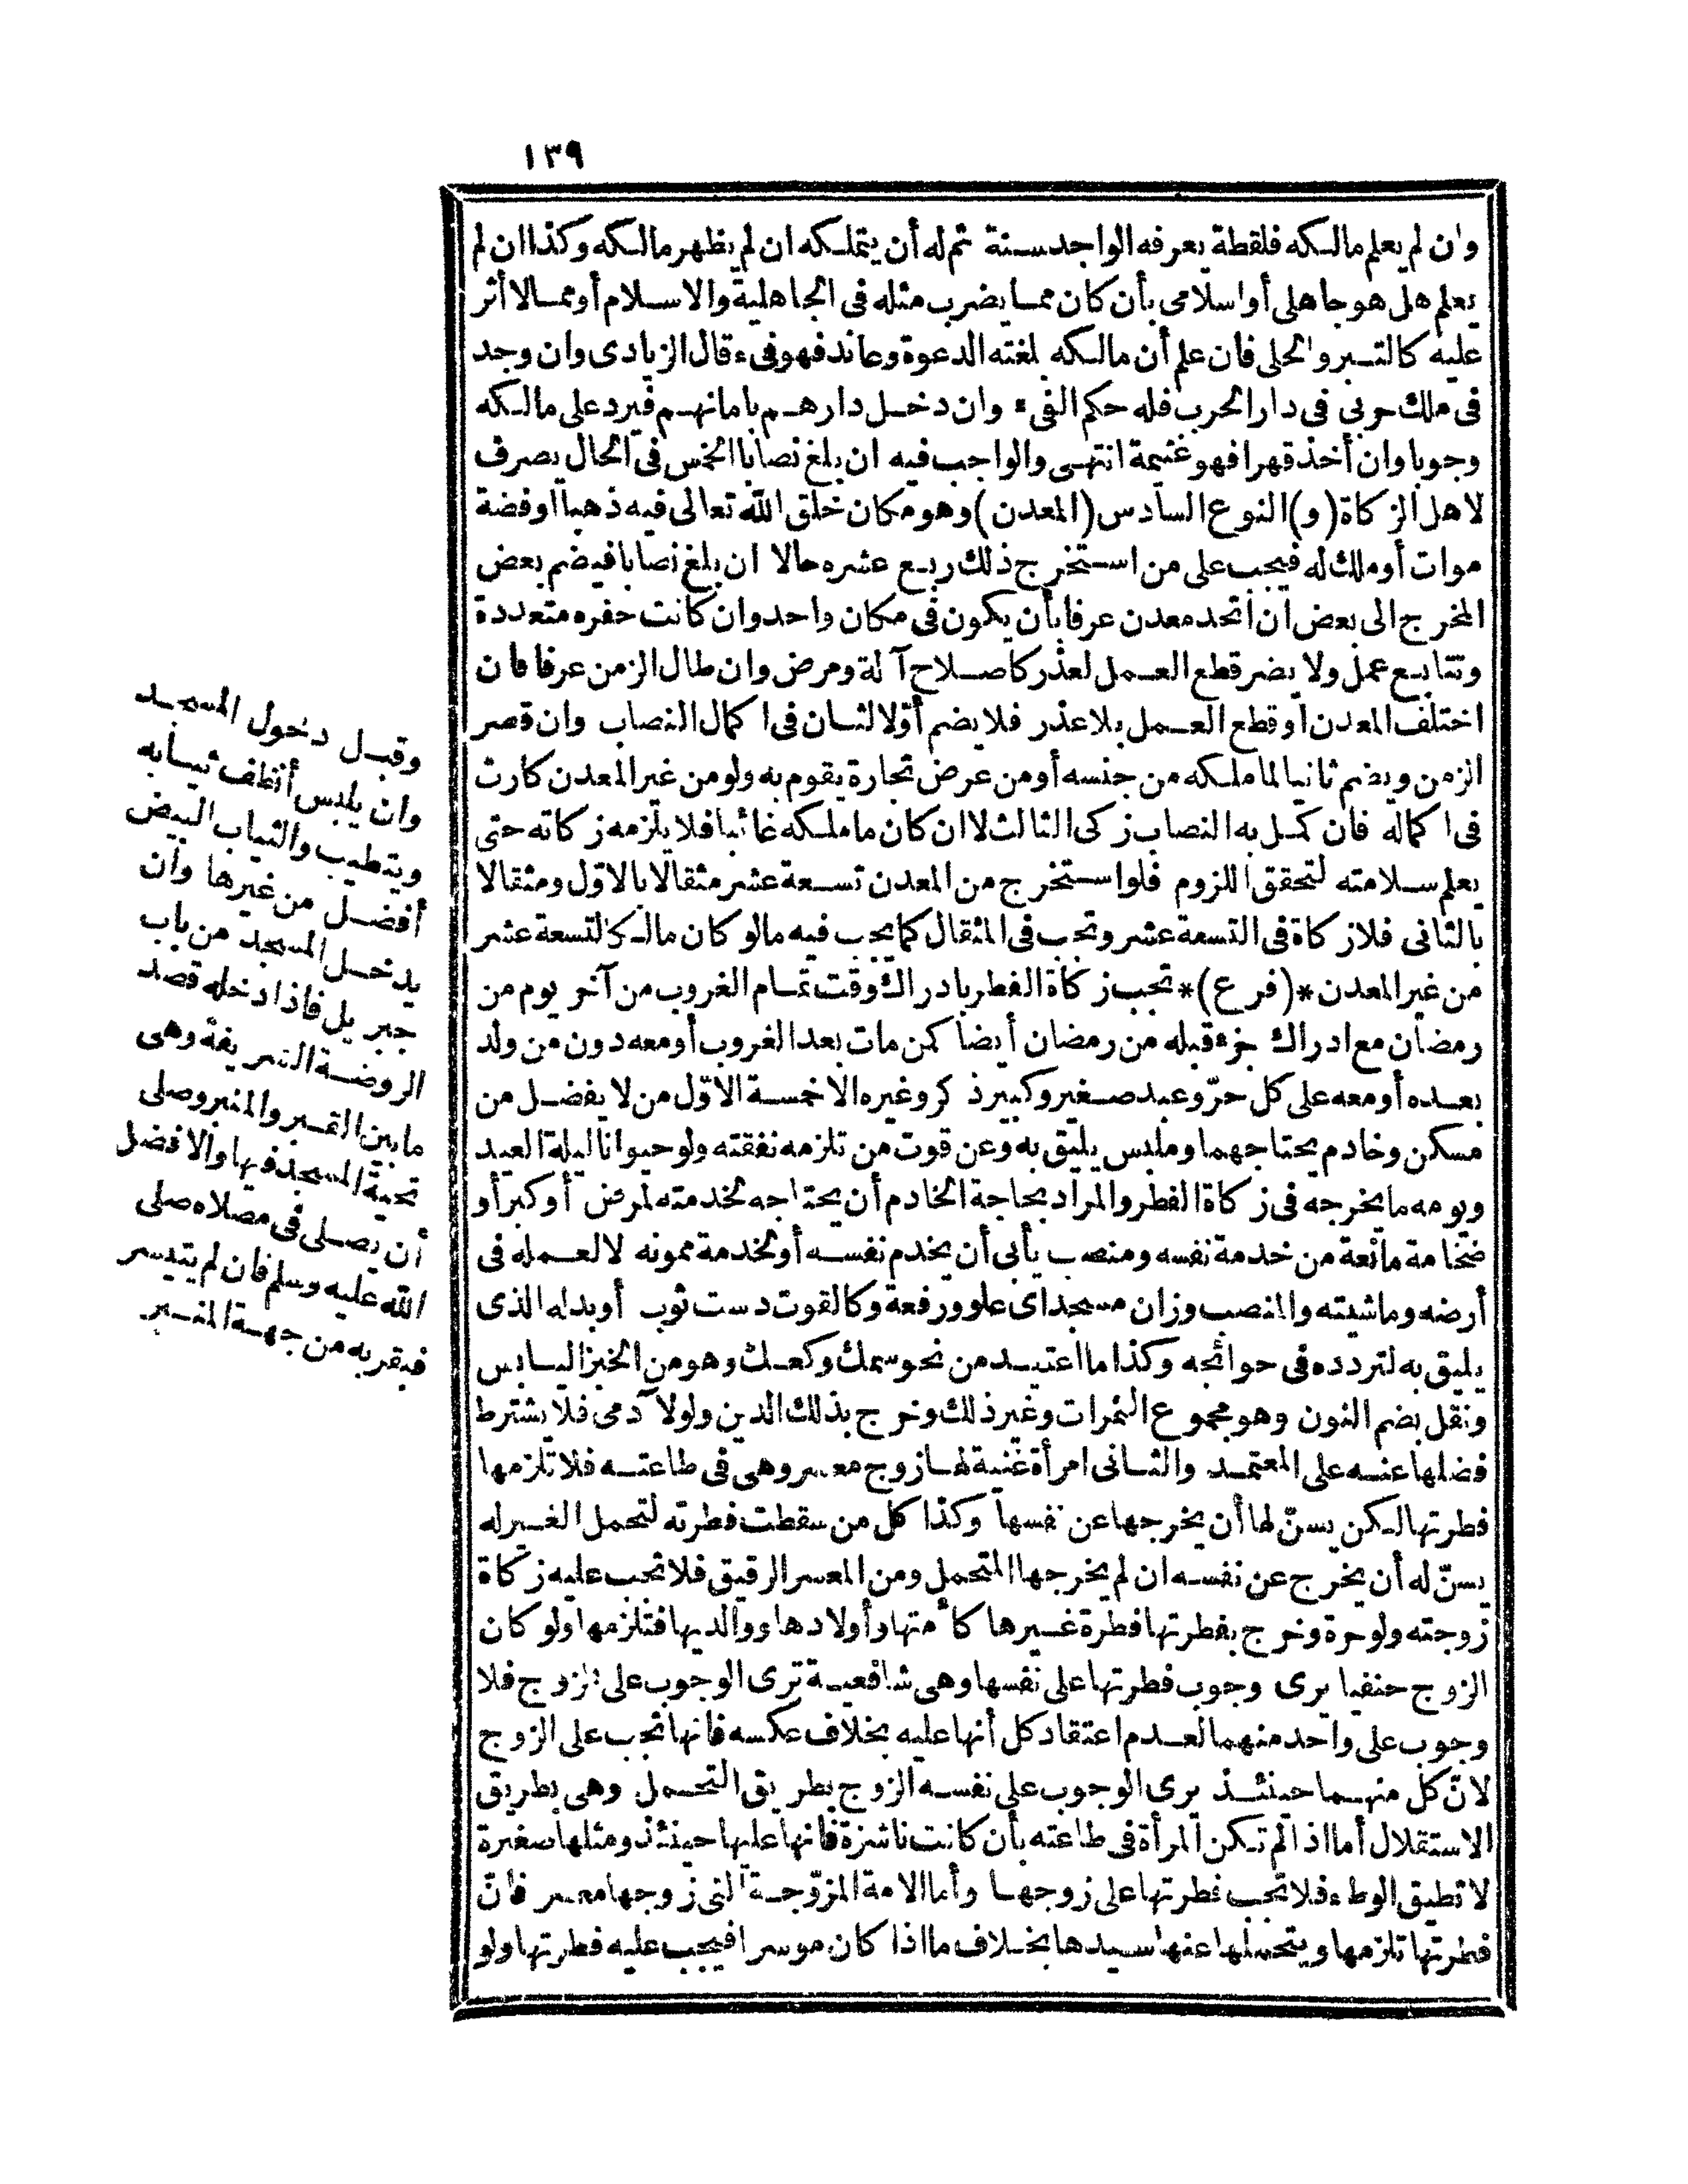 ١٣٩
وان لم يعلم مالكه فلقطة يعرفه الواجد سنة ثم له أن يتملكه ان لم يظهر مالكه وكذا ان لم
يعلم هل هو جاهلى أو اسلامى بأن كان مما يضرب مثله فى الجاهلية والاسلام أو مما لا أثر
عليه كالتبر والحلى فان علم أن مالكه بلغته الدعوة وعاند فهو فىء قال الزيادى وان وجد
فى ملك حربى فى دار الحرب فله حكم الفىء وان دخل دارهم بامانهم فيرد على مالكه
وجوبا وان أخذ قهرا فهو غنيمة انتهى والواجب فيه ان بلغ نصابا الخمس فى الحال يصرف
لاهل الزكاة (و) النوع السادس (المعدن) وهو مكان خلق الله تعالى فيه ذهبا او فضة
موات أو ملك له فيجب على من استخرج ذلك ربع عشره حالا ان بلغ نصابا فيضم بعض
المخرج الى بعض ان اتحد معدن عرفا بأن يكون فى مكان واحد وان كانت حفره متعددة
وتتابع عمل ولا يضر قطع العمل لعذر كاصلاح آلة ومرض وان طال الزمن عرفا فان
اختلف المعدن أو قطع العمل بلا عذر فلا يضم أوّلا لثان فى اكمال النصاب وان قصر
الزمن ويضم ثانيا لما ملكه من جنسه أو من عرض تجارة يقوم به ولو من غير المعدن كارث
فى اكماله فان كمل به النصاب زكى الثالث لا ان كان ما ملكه غائبا فلا يلزمه زكاته حتى
يعلم سلامته لتحقق اللزوم فلو استخرج من المعدن تسعة عشر مثقالا بالاوّل ومثقالا
بالثانى فلا زكاة فى التسعة عشر وتجب فى المثقال كما يجب فيه مالو كان مالك التسعة عشر
من غير المعدن *(فرع)* تجب زكاة الفطر بادراك وقت تمام الغروب من آخر يوم من
رمضان مع ادراك جزء قبله من رمضان أيضا كمن مات بعد الغروب أو معه دون من ولد
بعده أو معه على كل حرّ وعبد صغير وكبير ذكر وغيره الا خمسة الاوّل من لا يفضل من
مسكن وخادم يحتاجهما وملبس يليق به وعن قوت من تلزمه نفقته ولو حيوانا ليلة العيد
ويومه ما يخرجه فى زكاة الفطر والمراد بحاجة الخادم أن يحتاجه لخدمته لمرض أو كبر أو
ضخامة مانعة من خدمة نفسه ومنصب يأبى أن يخدم نفسه أو لخدمة ممونه لا لعمله فى
أرضه وماشيته والمنصب وزان مسجد اى علو ورفعة وكالقوت دست ثوب أو بدله الذى
يليق به لتردده فى حوائجه وكذا ما اعتيد من نحو سمك وكعك وهو من الخبز اليابس
ونقل بضم النون وهو مجموع الثمرات وغير ذلك وخرج بذلك الدين ولو لآدمى فلا يشترط
فضلها عنه على المعتمد والثانى امرأة غنية لها زوج معسر وهى فى طاعته فلا تلزمها
فطرتها لكن يسنّ لها أن يخرجها عن نفسها وكذا كل من سقطت فطرته لتحمل الغير له
يسنّ له أن يخرج عن نفسه ان لم يخرجها المتحمل ومن المعسر الرقيق فلا تجب عليه زكاة
زوجته ولو حرة وخرج بفطرتها فطرة غيرها كأمتها وأولادها ووالديها فتلزمها ولو كان
الزوج حنفيا يرى وجوب فطرتها على نفسها وهى شافعية ترى الوجوب على الزوج فلا
وجوب على واحد منهما لعدم اعتقاد كل أنها عليه بخلاف عكسه فانها تجب على الزوج
لانّ كل منهما حينئذ يرى الوجوب على نفسه الزوج بطريق التحمل وهى بطريق
الاستقلال أما اذا لم تكن المرأة فى طاعته بأن كانت ناشزة فانها عليها حينئذ ومثلها صغيرة
لا تطيق الوطء فلا تجب فطرتها على زوجها وأما الامة المزوّجة التى زوجها معسر فانّ
فطرتها تلزمها ويتحملها عنها سيدها بخلاف ما اذا كان موسرا فيجب عليه فطرتها ولو
وقبل دخول المسجد
وان يلبس أنظف ثيابه
ويتطيب والثياب البيض
أفضل من غيرها وأن
يدخل المسجد من باب
جبريل فاذا دخله قصد
الروضة الشريفة وهى
ما بين القبر والمنبر وصلى
تحية المسجد فيها والافضل
أن يصلى فى مصلاه صلى
الله عليه وسلم فان لم يتيسر
فبقربه من جهة المنبر